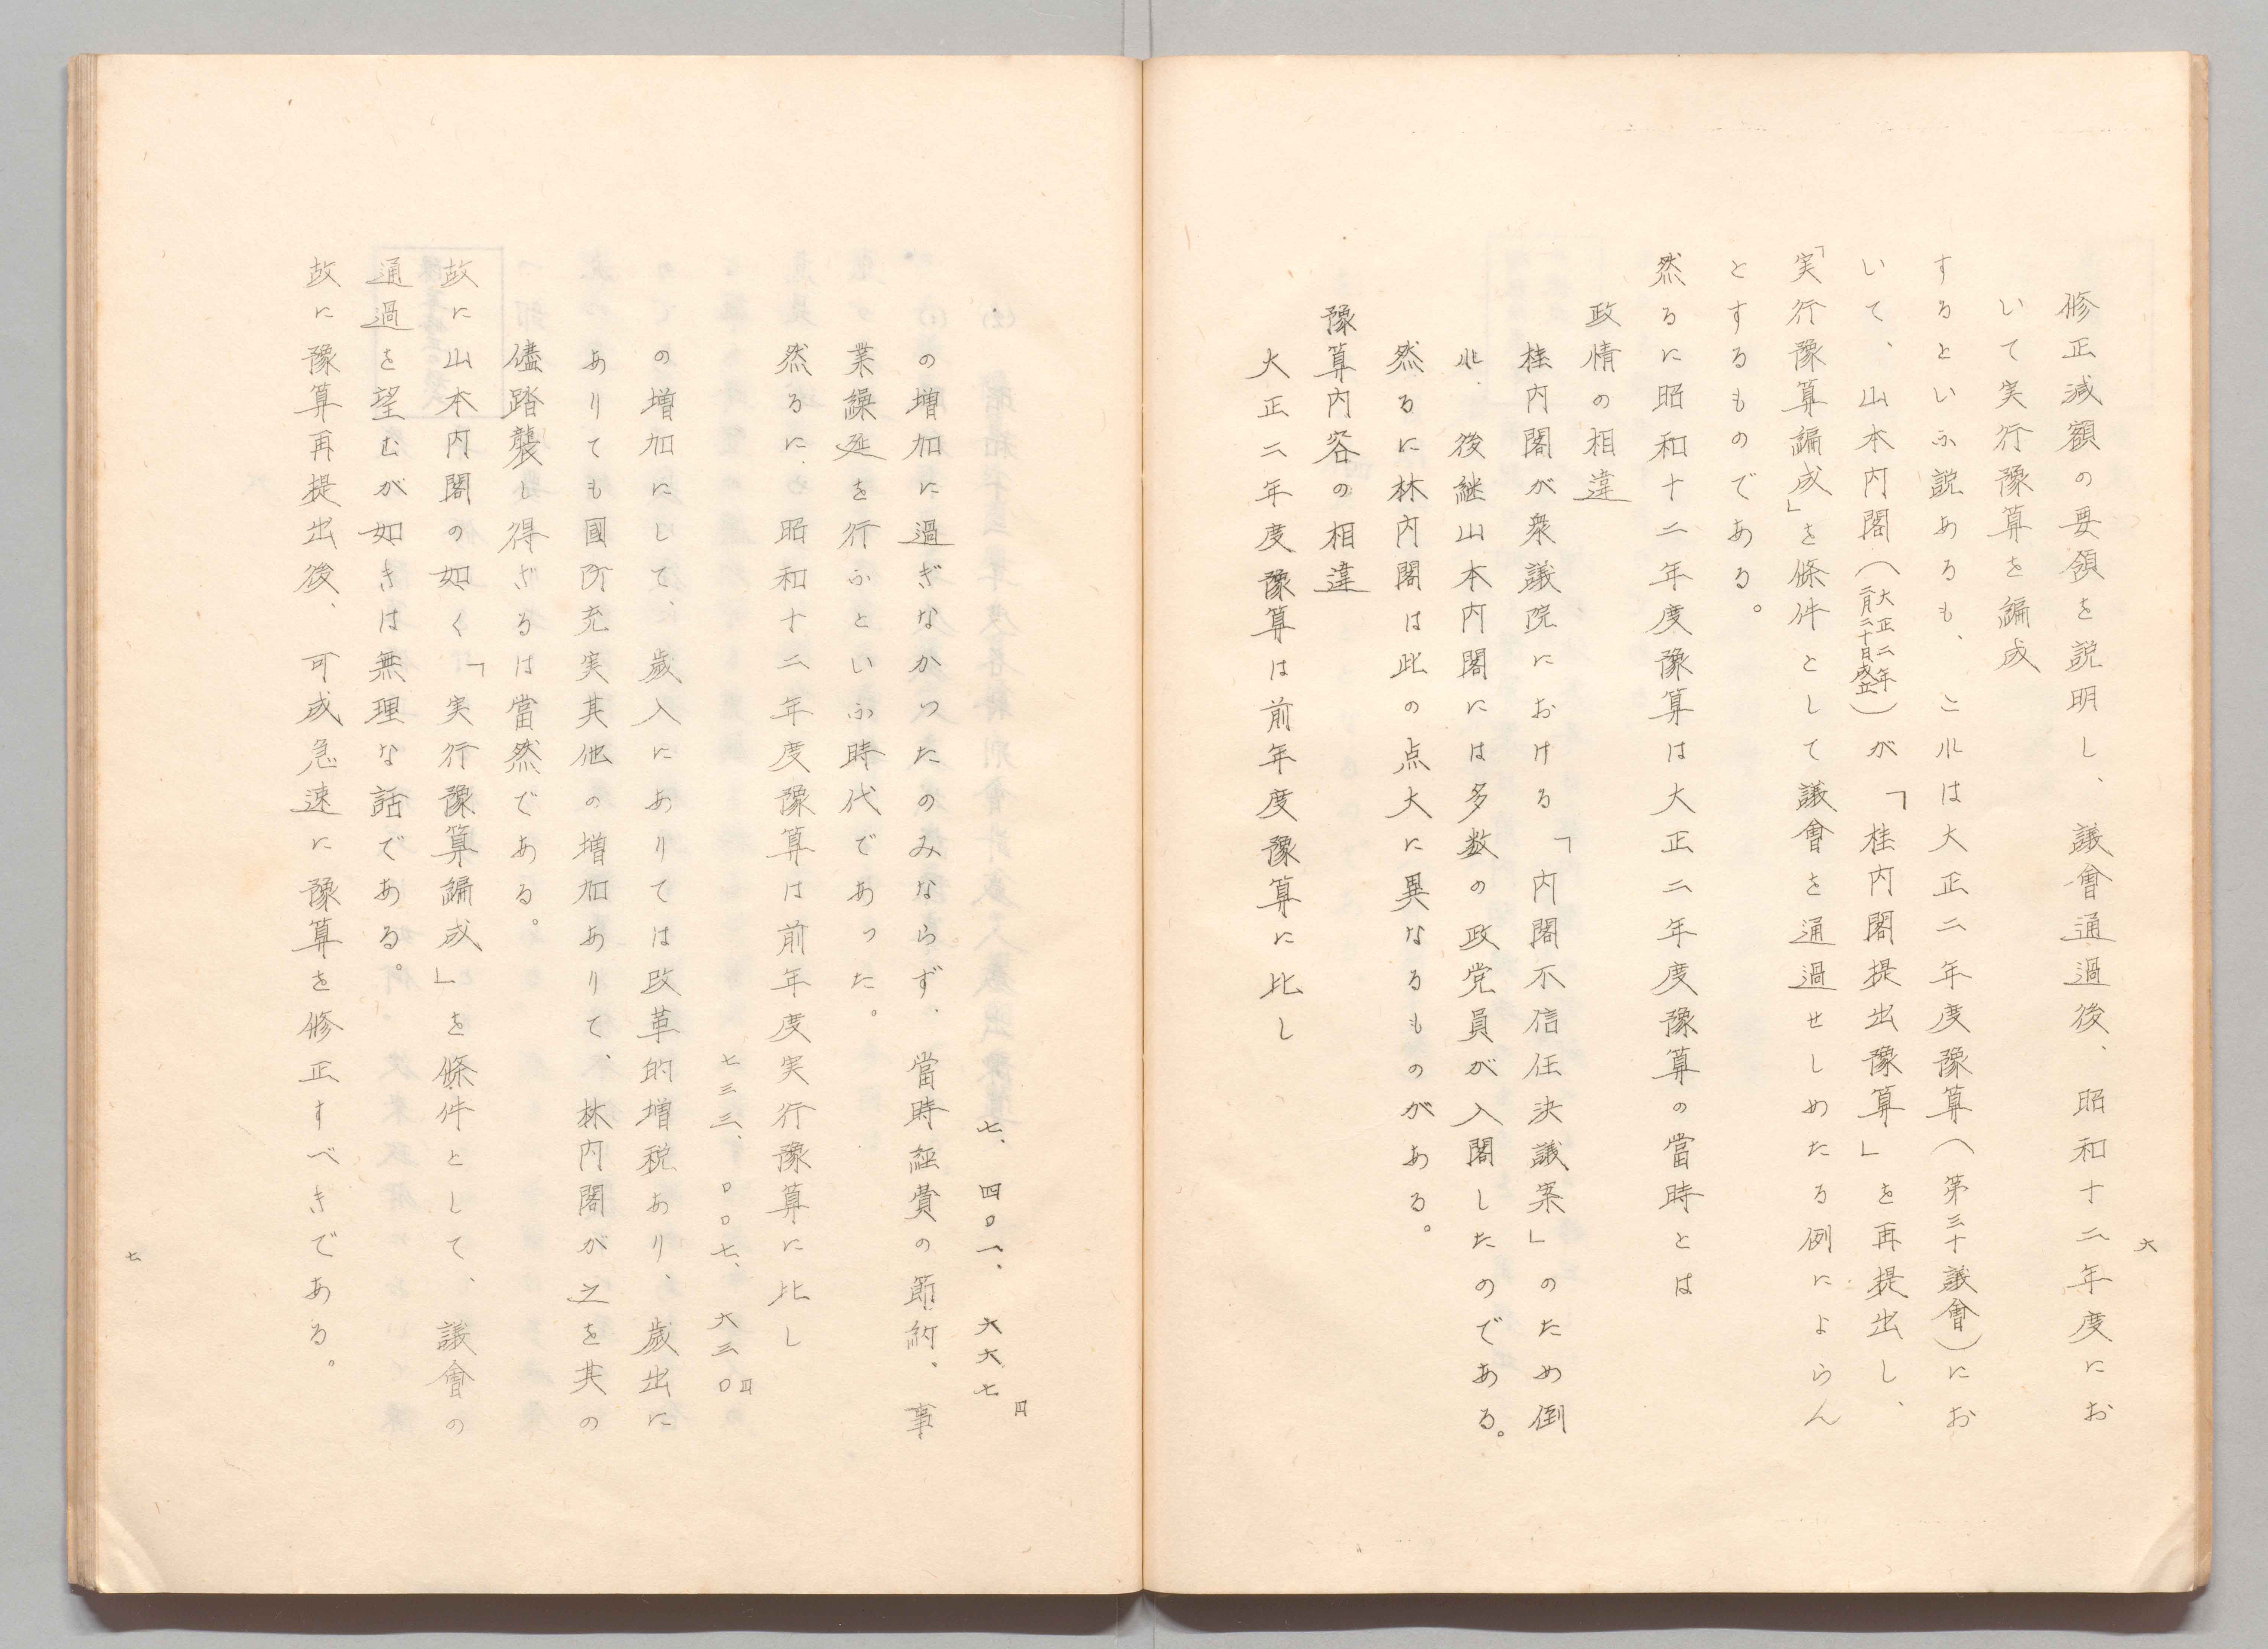 六
修正減額の要領を説明し、議會通過後、昭和十二年度にお
いて実行豫算を編成
するといふ説あるも、これは大正二年度豫算(第三十議會)にお
いて、山本内閣(大正二年二月二十日成立)が「桂内閣提出豫算」を再提出し、
「実行豫算編成」を條件として議會を通過せしめたる例によらん
とするものである。
然るに昭和十二年度豫算は大正二年度豫算の當時とは
政情の相違
桂内閣が衆議院における「内閣不信任決議案」のため倒
れ、後継山本内閣には多数の政党員が入閣したのである。
然るに林内閣は此の点大に異なるものがある。
豫算内容の相違
大正二年度豫算は前年度豫算に比し
七、四〇一、六六七円
の増加に過ぎなかつたのみならず、當時経費の節約、事
業繰延を行ふといふ時代であつた。
然るに、昭和十二年度豫算は前年度実行豫算に比し
七三三、〇〇七、六三〇円
の増加にして、歳入にありては改革的増税あり、歳出に
ありても國防充実其他の増加ありて、林内閣が之を其の
儘踏襲し得ざるは當然である。
故に山本内閣の如く「実行豫算編成」を條件として、議會の
通過を望むが如きは無理な話である。
故に豫算再提出後、可成急速に豫算を修正すべきである。
七